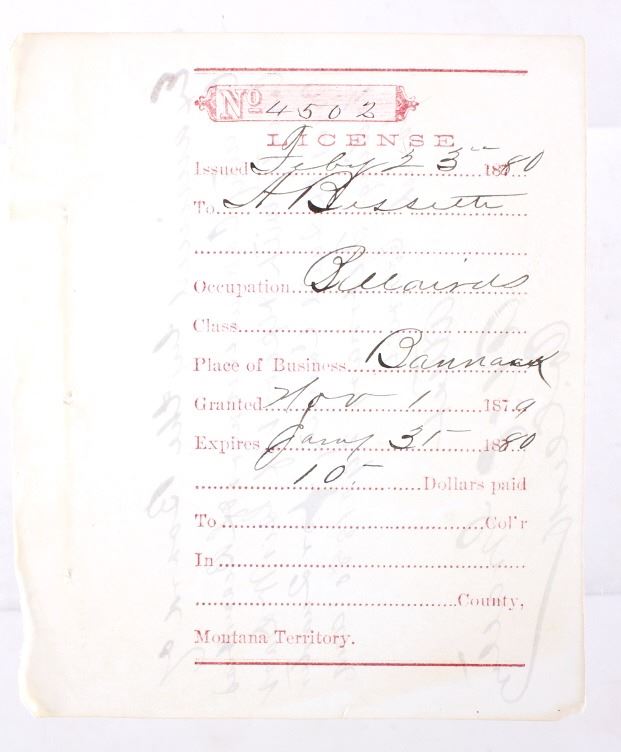 No 4502
LICENSE
Issued Feby 23rd 1880
To A Bessette
Occupation Billairds
Class
Place of Business Bannack
Granted Nov 1 1879
Expires Jany 31 1880
10 Dollars paid
To Col'r
In
County,
Montana Territory.